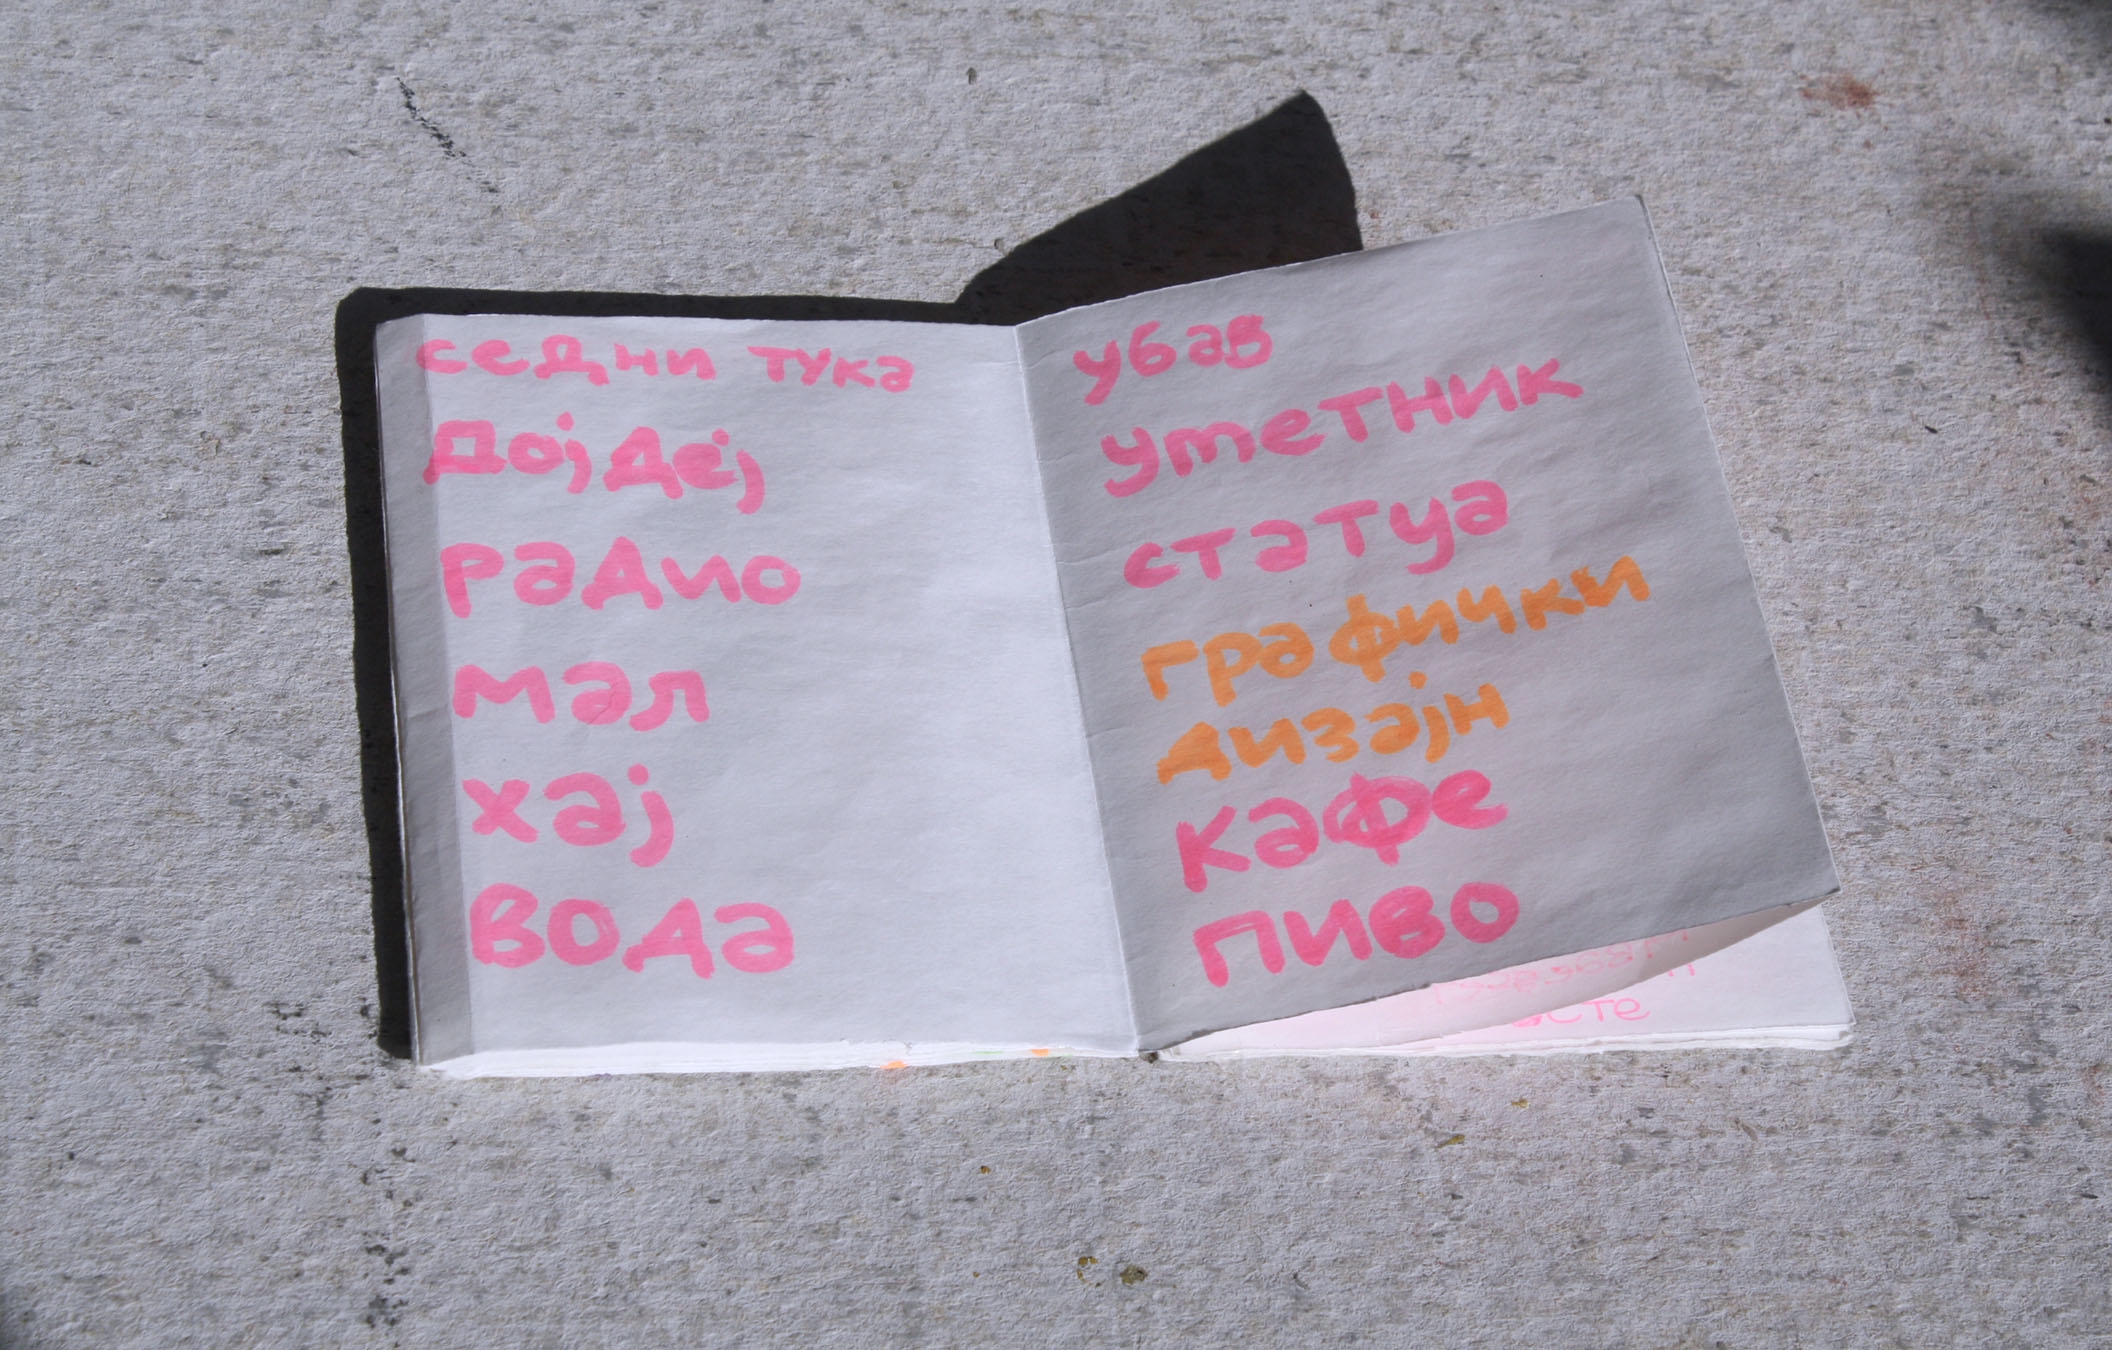 седни тука
дојдеј
радио
мал
хај
вода
убав
уметник
статуа
графички
дизајн
кафе
пиво